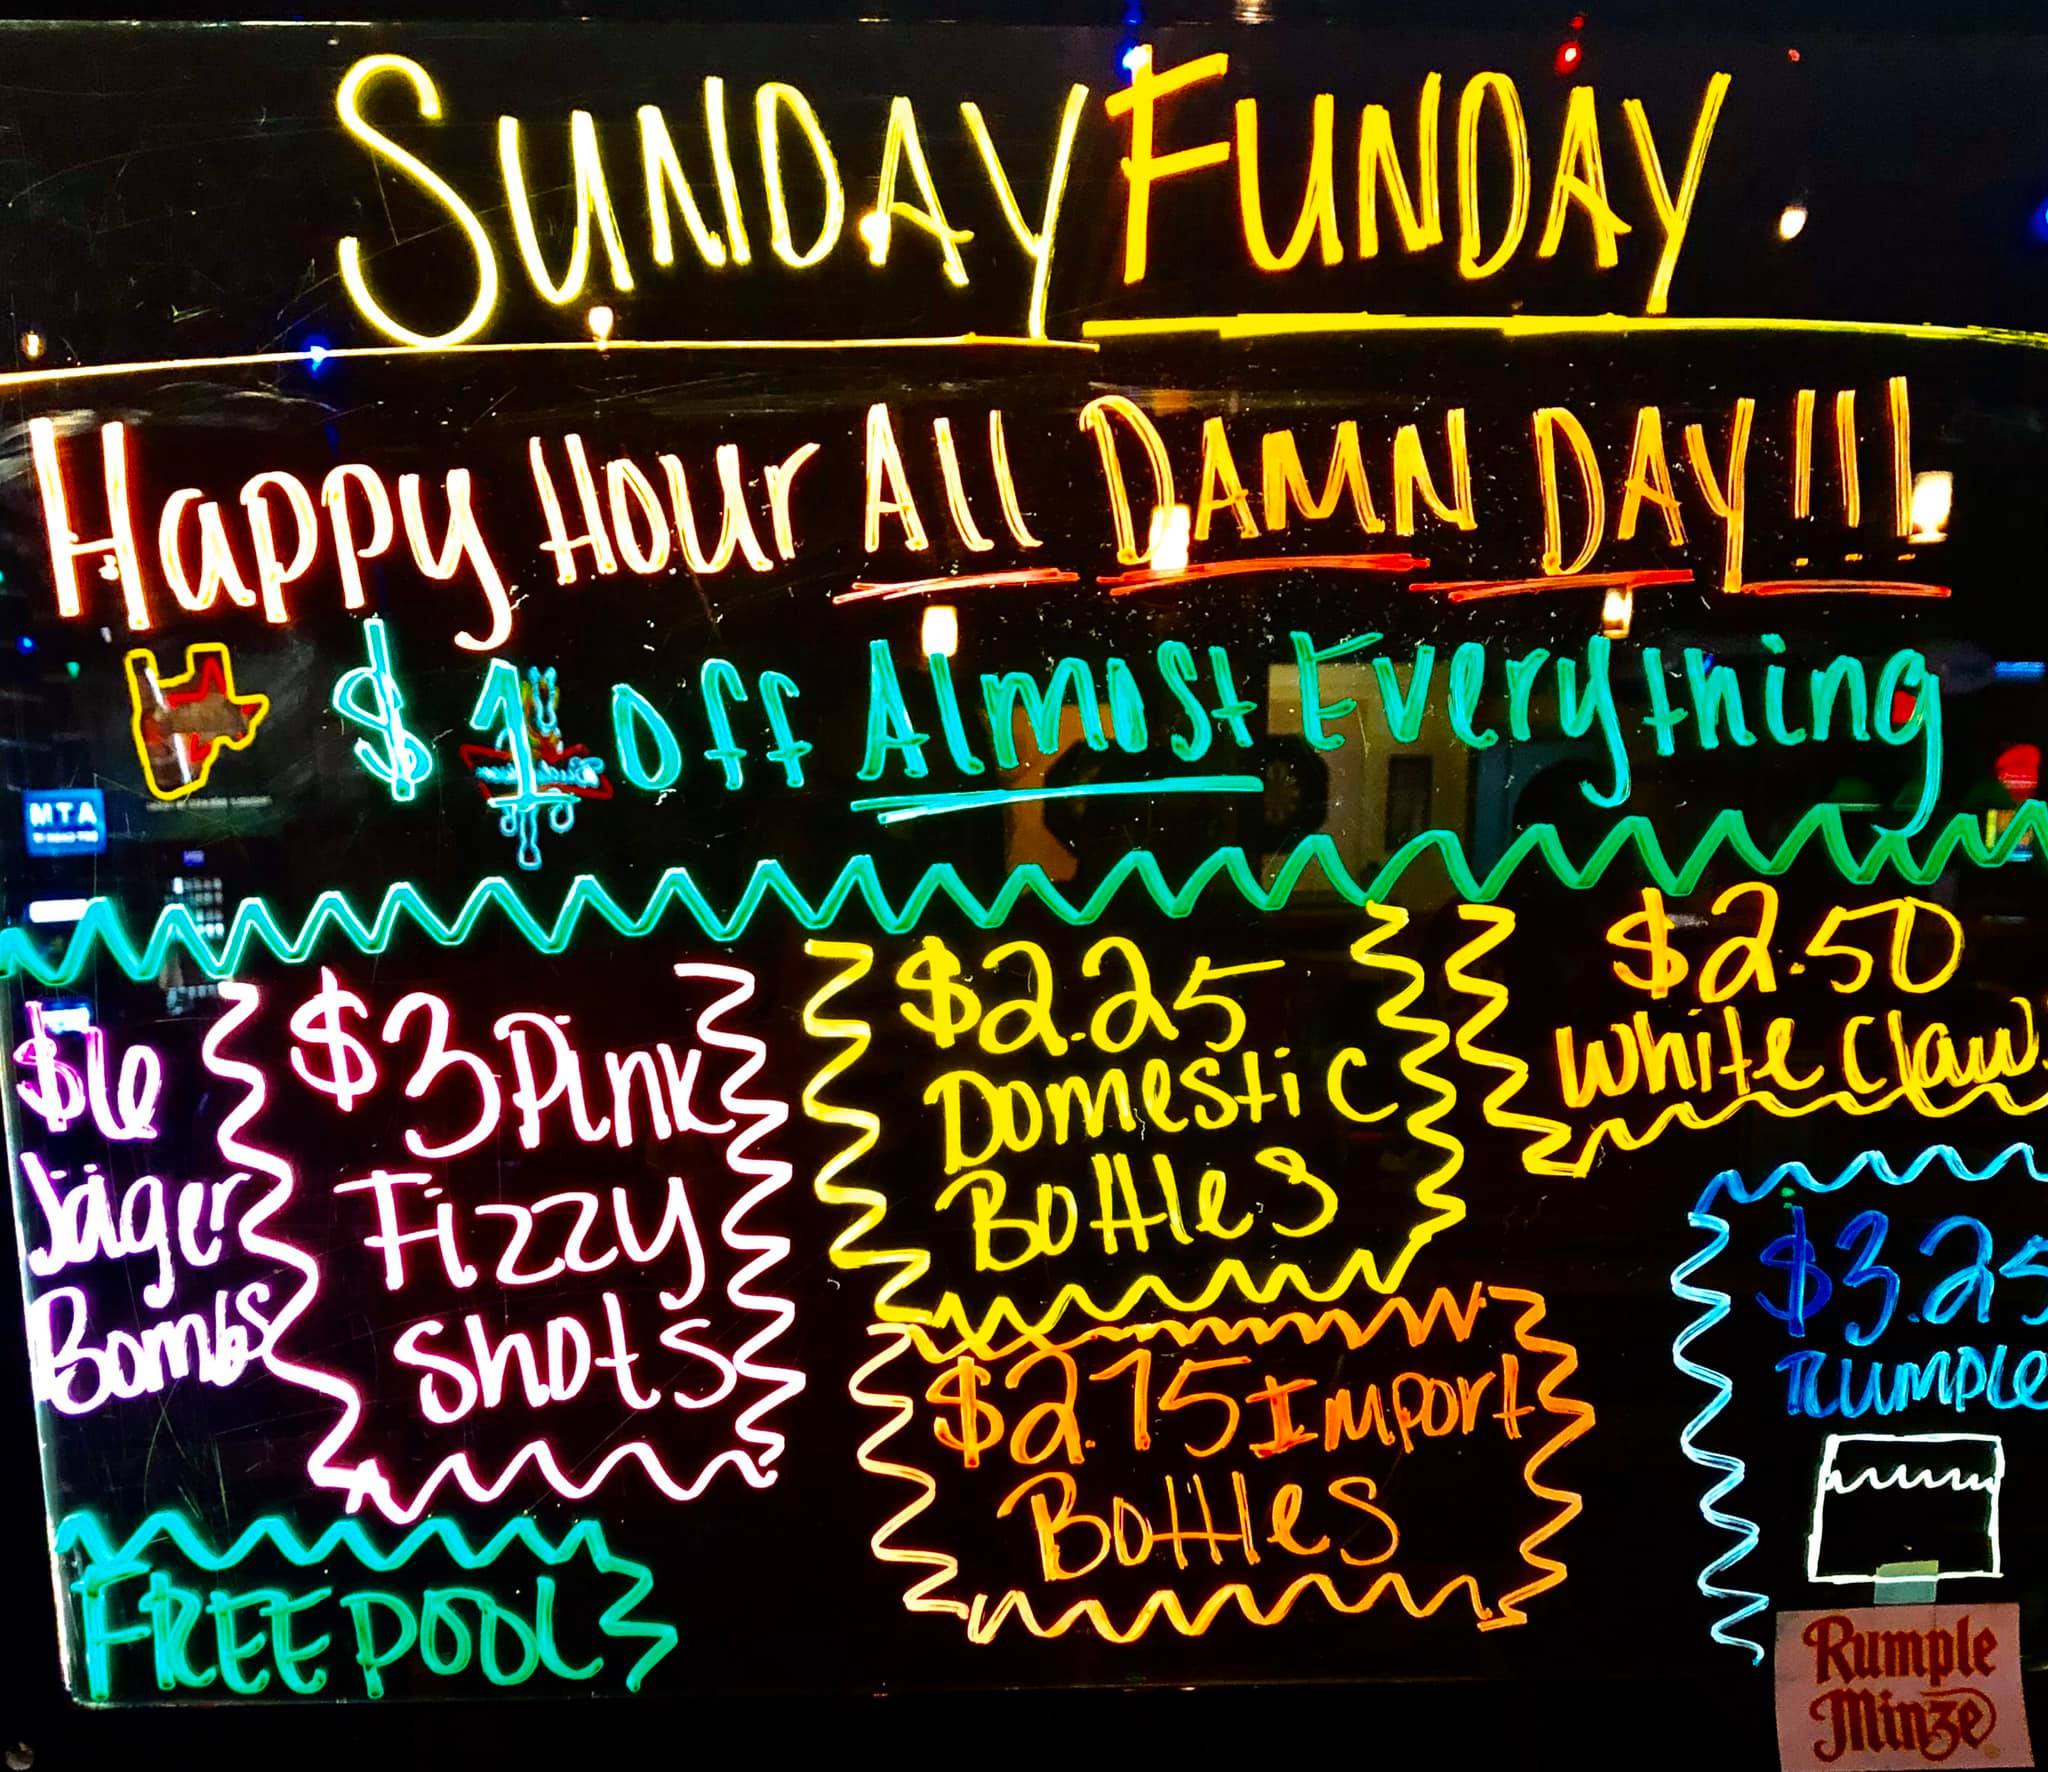 SUNDAY FUNDAY
Happy Hour All DAMN DAY!!!
$1 off Almost Everything
MTA
$6
Jäger
Bombs
$3 Pink
Fizzy
Shots
$2.25
Domestic
Bottles
$2.50
White Claw
$2.75 Import
Bottles
$3.25
Rumple
Rumple
Minze
FREE POOL